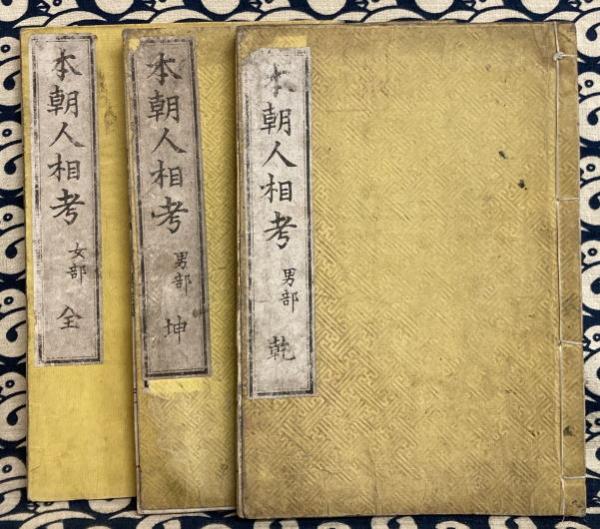 本朝人相考 男部 乾
本朝人相考 男部 坤
本朝人相考 女部 全